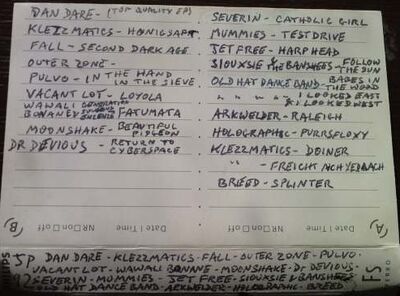 DAN DARE - (TOP QUALITY EP)
KLEZZMATICS - HONIGSAFT
FALL - SECOND DARK AGE
OUTER ZONE -
PULVO - IN THE HAND
IN THE SIEVE
VACANT LOT - LOYOLA
WAWALI
BONANEY FATUMATA
MOONSHAKE - BEAUTIFUL
PIDGEON
DR DEVIOUS - RETURN TO
CYBERSPACE
SEVERIN - CATHOLIC GIRL
MUMMIES - TEST DRIVE
JET FREE - HARP HEAD
SIOUXSIE & THE BANSHEES - FOLLOW
THE SUN
OLD HAT DANCE BAND - BABES IN
THE WOOD
" " " " - I LOOKED EAST
& I LOOKED WEST
ARKWELDER - RALEIGH
HOLOGRAPHIC - PURRSFLOXY
KLEZZMATICS - DOINER
" - FREIGHT NACH YERBACH
BREED - SPLINTER
B) Date | Time NR On Off
A) Date | Time NR On Off
JP DAN DARE - KLEZZMATICS - FALL - OUTER ZONE - PULVO -
VACANT LOT - WAWALI BONANE - MOONSHAKE - DR DEVIOUS -
92 SEVERIN - MUMMIES - JET FREE - SIOUXSIE & BANSHEES
OLD HAT DANCE BAND - ARKWELDER - HOLOGRAPHIC - BREED
FS